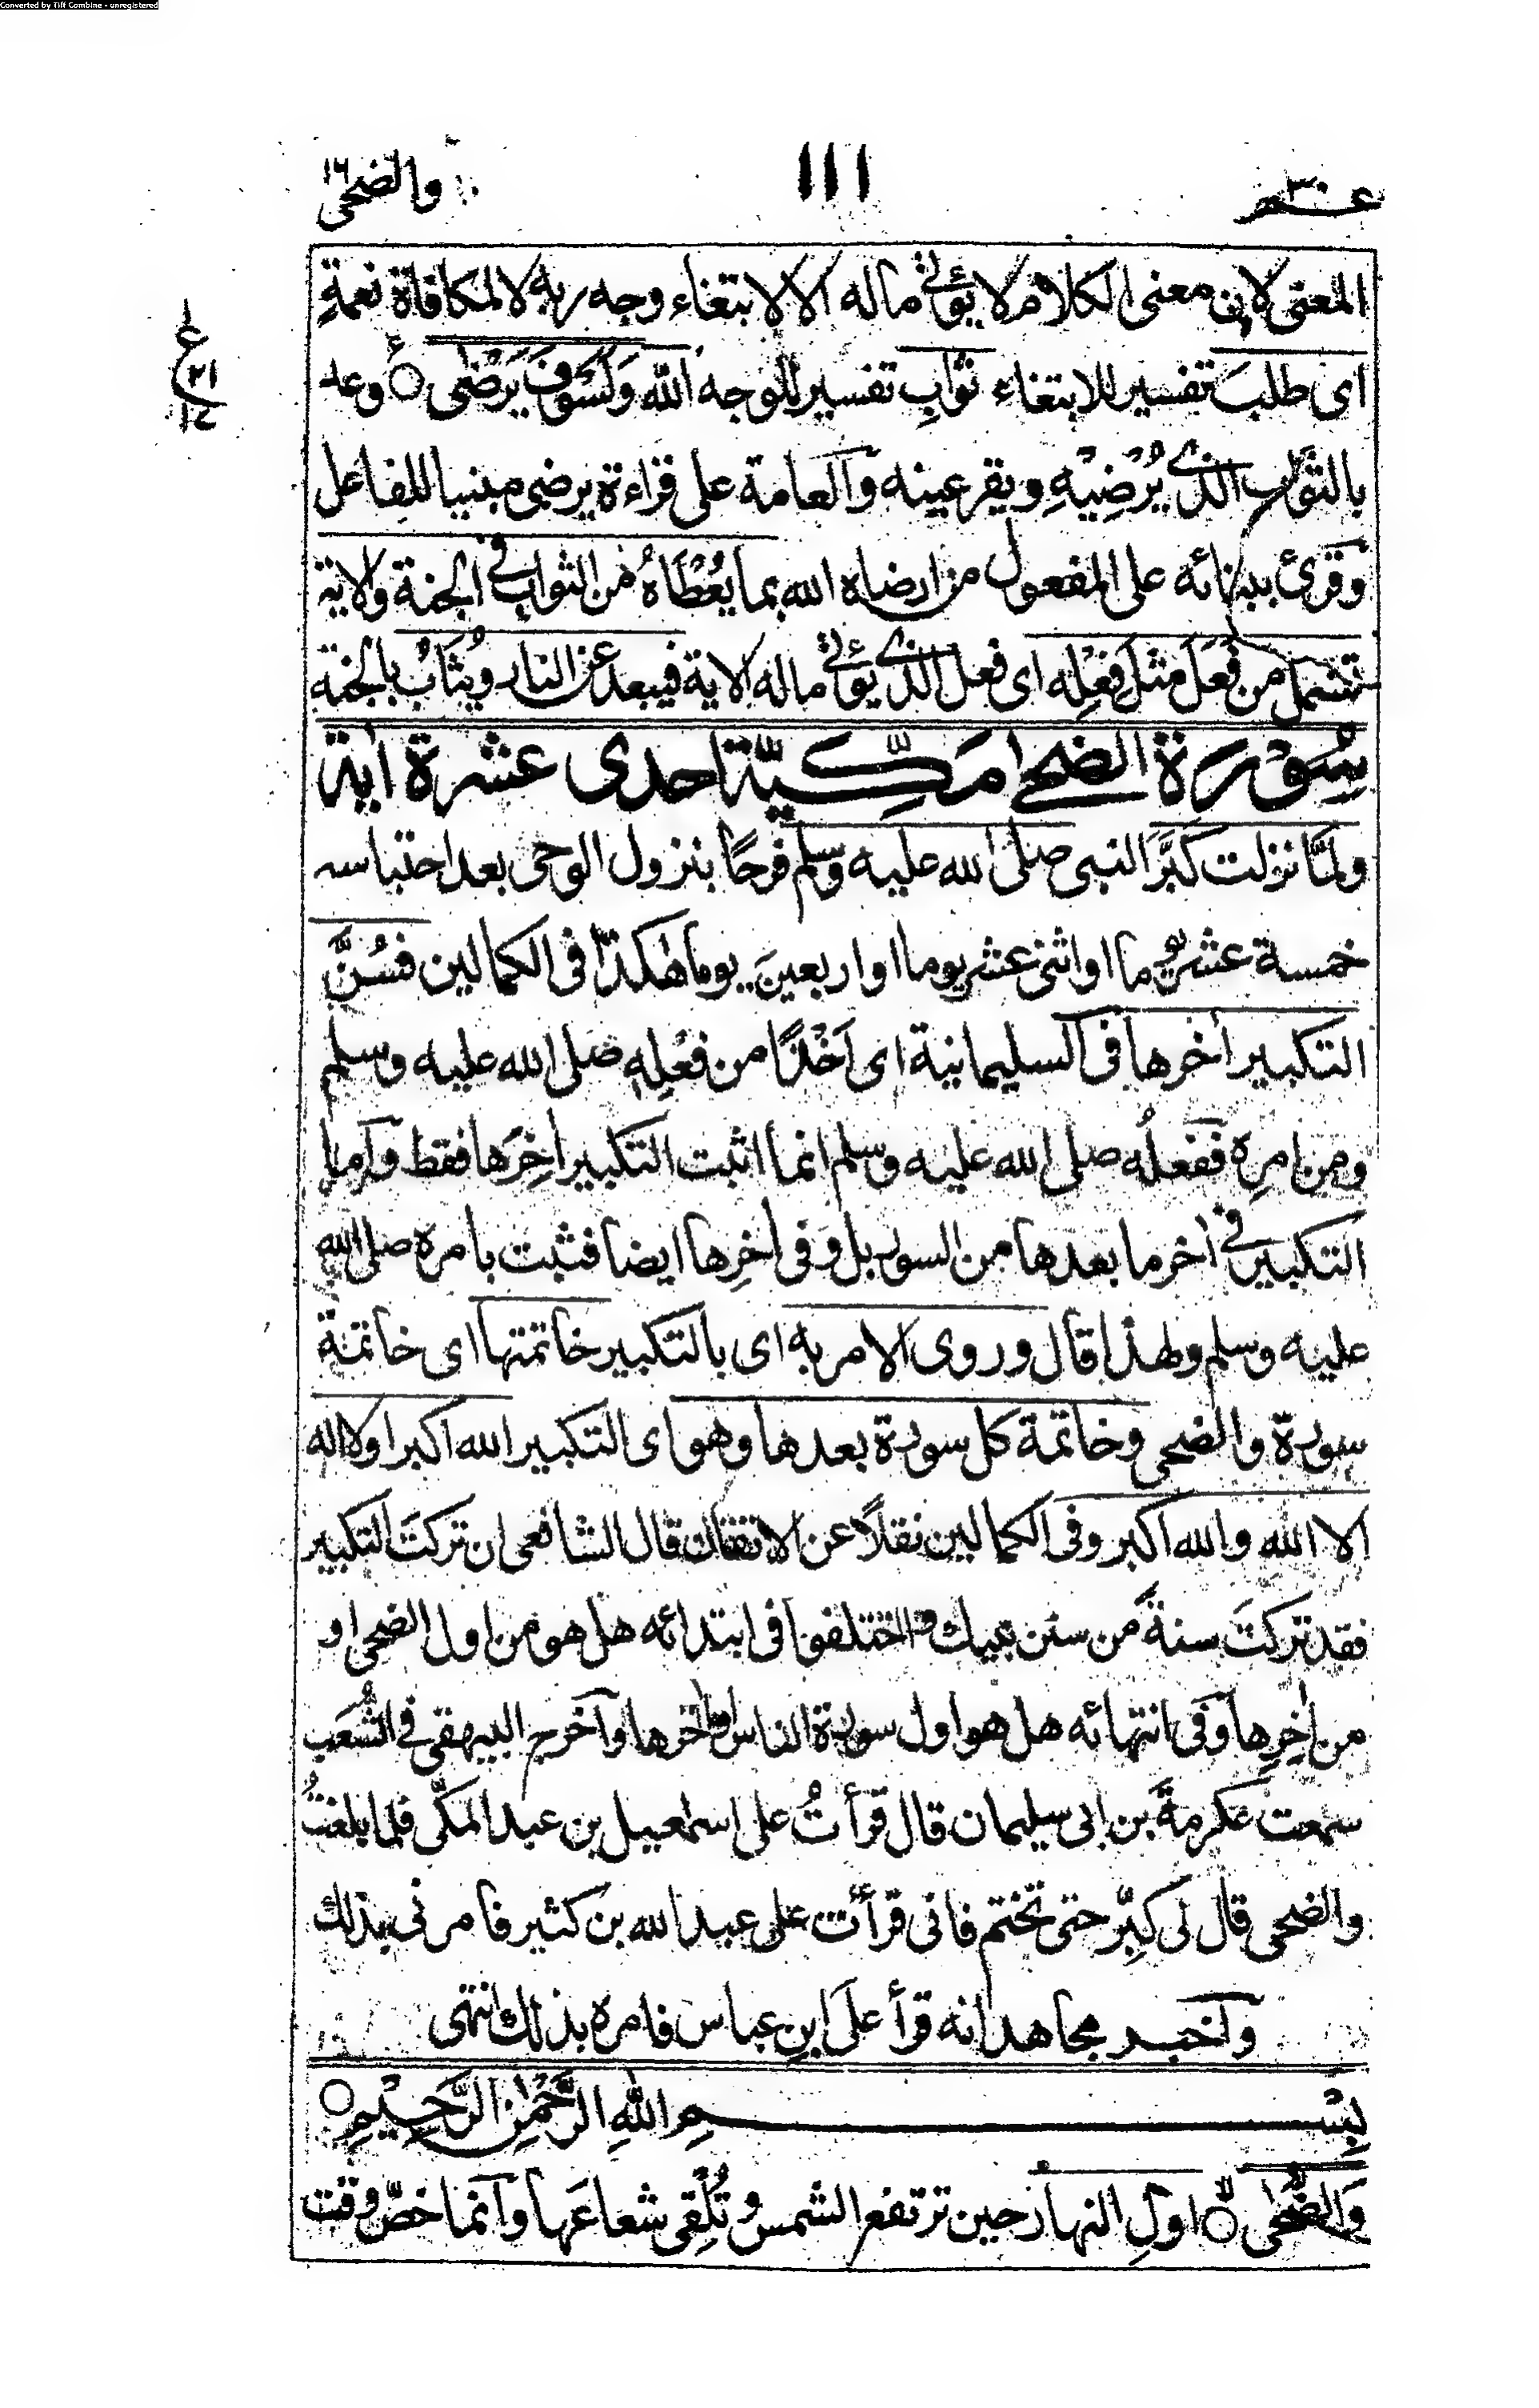 Converted by Tiff Combine - unregistered
عـم ٣٠
١١١
والضحى
ع
٢١
١٤
المعنى لان معنى الكلام لا يؤتى ماله الا لابتغاء وجه ربه لا لمكافاة نعمةٍ
اى طلبَ تفسير للابتغاء ثوابِ تفسير للوجه الله وَلَسَوْفَ يَرْضٰى ○ وعد
بالثواب الذى يُرْضِيْهِ ويقر عينه والعامة على قراءة يرضى مبنيا للفاعل
وقرئ ببنائه على المفعول من ارضاه الله بما يُعْطَاهُ من الثواب فى الجنة والاية
تشمل من فَعَلَ مثلَ فِعْلِه اى فعل الذى يؤتى ماله الاية فيبعد عن النار ويُثَابُ بالجنة
سُوْرَة الضحى مَكِّيَّة احدى عشرة اٰية
ولمّا نزلت كَبَّرَ النبى صلى الله عليه وسلم فرحًا بنزول الوحى بعد احتباسه
خمسة عشر يوما او اثنى عشر يوما او اربعينَ يوما هٰكذا فى الكمالين فَسُنَّ
التكبير اٰخرها فى السليمانية اى اَخْذًا من فعْلِهٖ صلى الله عليه وسلم
ومن امرِه ففعلُه صلى الله عليه وسلم انما اثبت التكبير اٰخِرَها فقط واما
التكبير فى اٰخر ما بعدها من السور بل وفى اٰخِرِها ايضا فثبت بامره صلى الله
عليه وسلم ولهذا قال وروى الامر به اى بالتكبير خاتمتها اى خاتمة
سورة والضحى وخاتمة كل سورة بعدها وهو اى التكبير الله اكبر او لا اله
الا الله والله اكبر وفى الكمالين نقلًا عن الاتقان قال الشافعى ان تركتَ التكبير
فقد تركتَ سنةً من سنن نبيك واختلفوا فى ابتدائه هل هو من اول الضحى او
من اٰخِرِها وفى انتهائه هل هو اول سورة الناس او اٰخرها واخرج البيهقى فى الشُّعَب
سمعت عكرمةَ بن ابى سليمان قال قرأتُ على اسمٰعيل بن عبد المكّى فلما بلغتُ
والضحى قال لى كبّر حتى تختم فانى قرأت على عبد الله بن كثير فامرنى بذلك
واخبر مجاهد انه قرأ على ابن عباس فامره بذلك انتهى
بِسْمِ اللهِ الرَّحْمٰنِ الرَّحِيْمِ ○
وَالضُّحٰى ○ اولِ النهار حين ترتفع الشمس وتُلْقِى شعاعَها وانما خصّ وقت